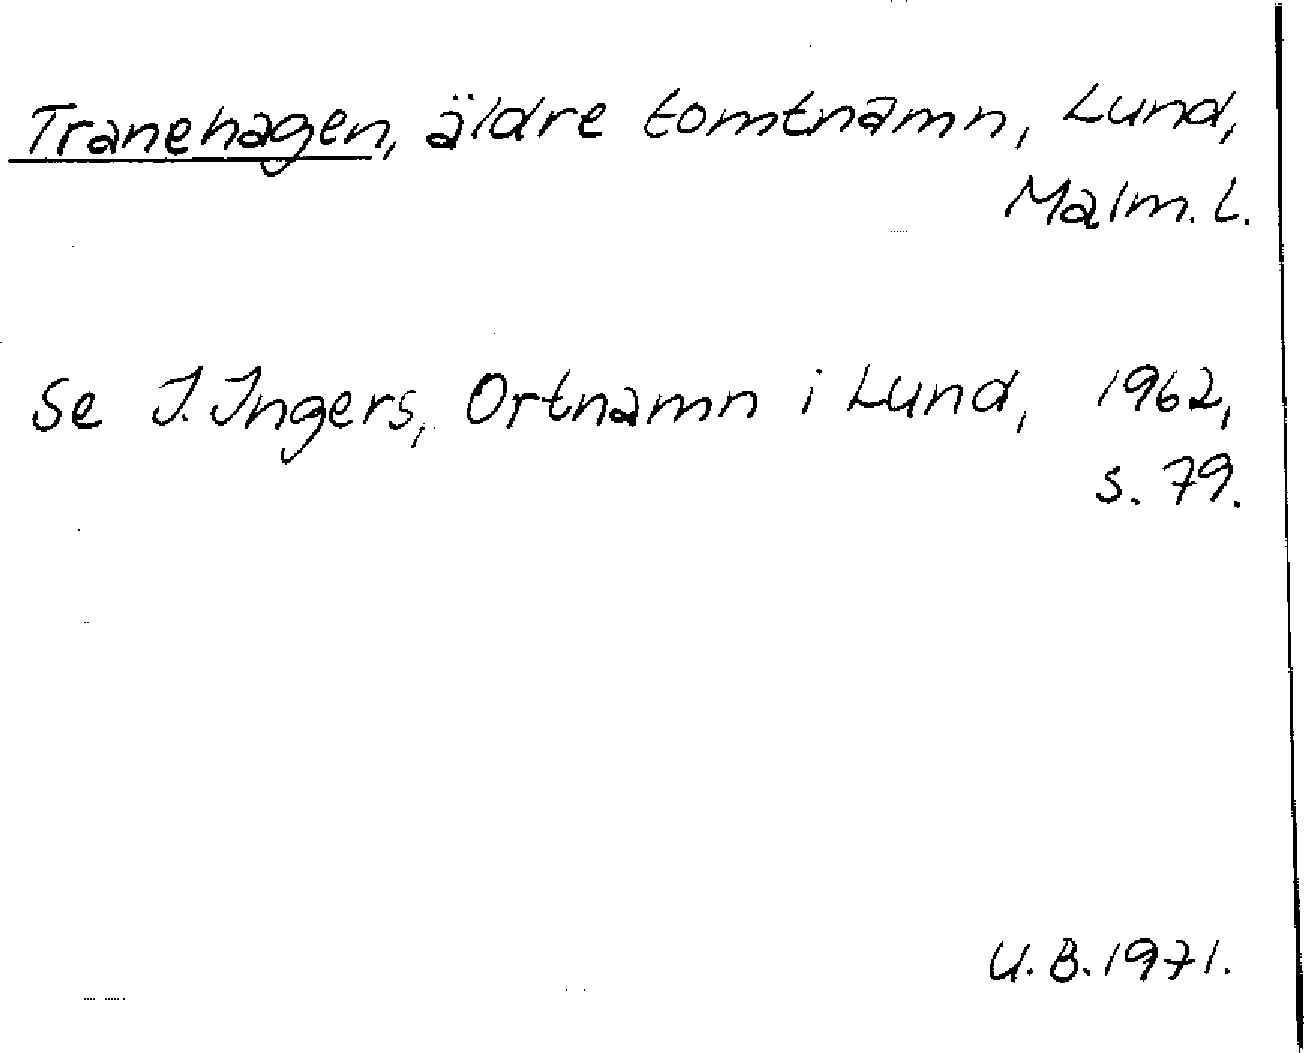 Tranehagen, äldre tomtnamn, Lund,
Malm. L.
Se I. Ingers, Ortnamn i Lund, 1962,
s. 79.
U. B. 1971.